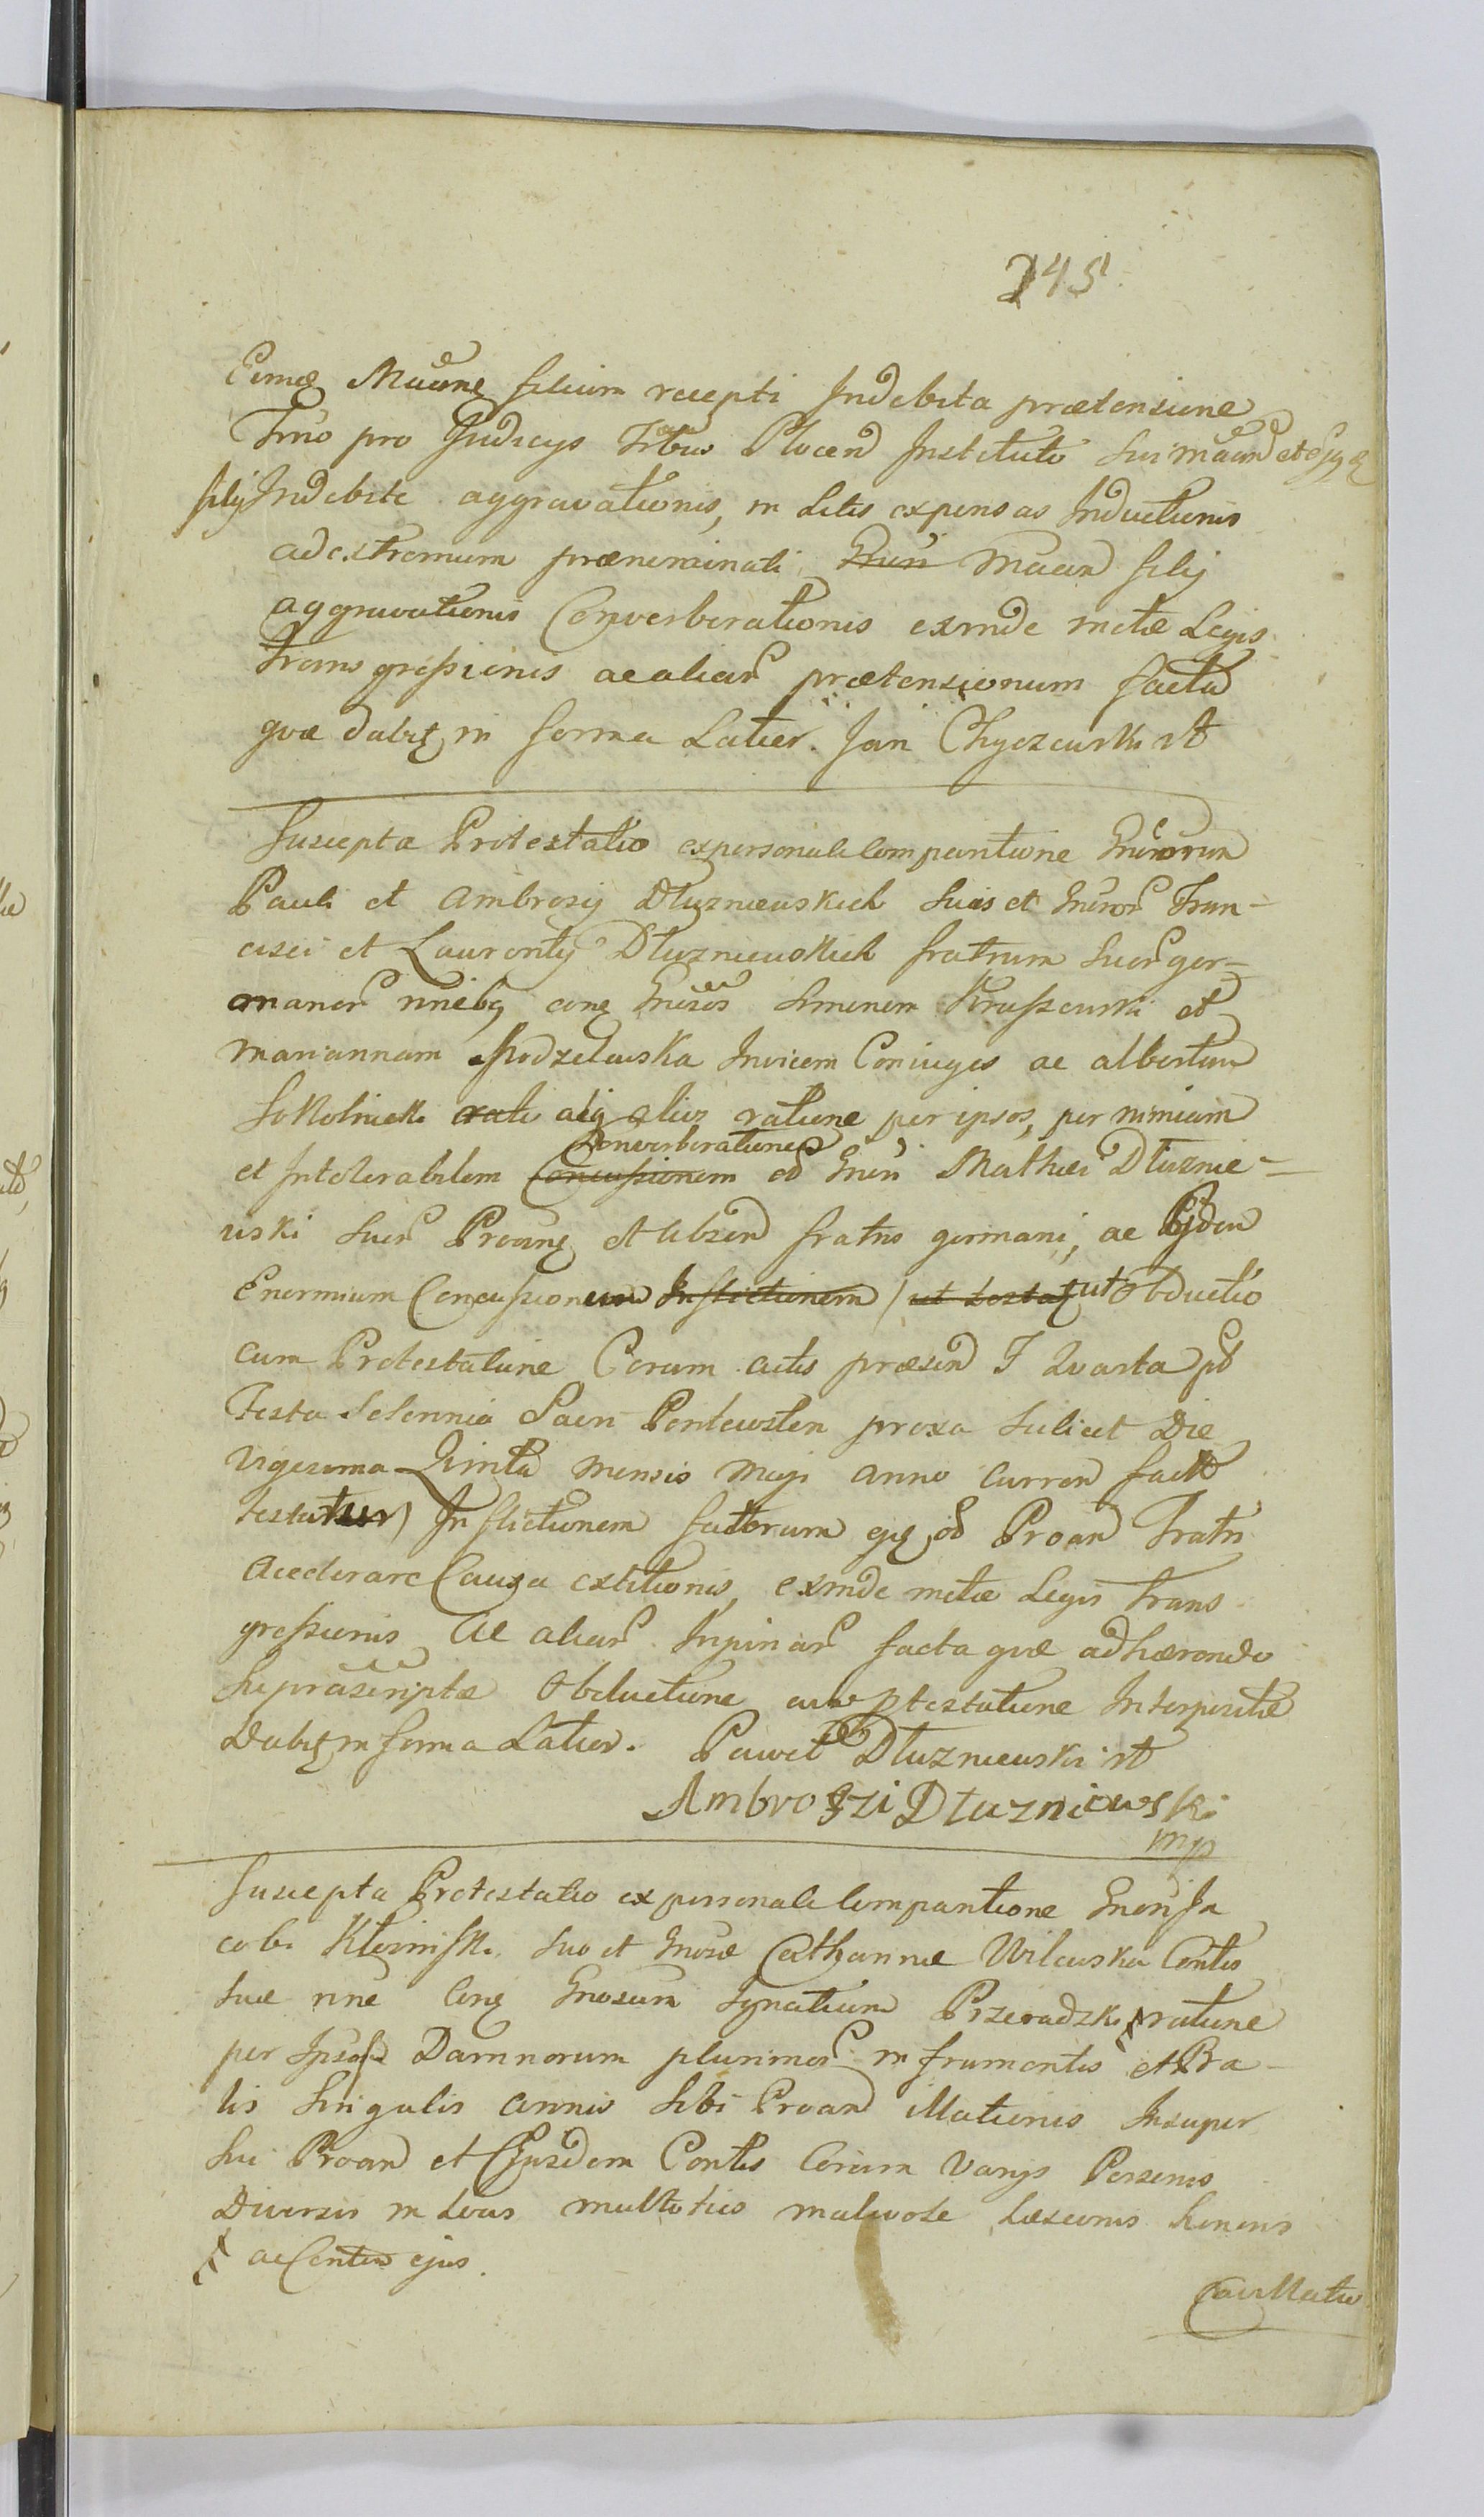 245
Ejusmodi filium recepti Indebita prætensione
Trno pro Judicijs Trbus Plocen Instituto sui et ejq
filij Indebite aggravationis, in Litis expensas Inductionis
ad extremum prænominati filij
aggravationis Converberationis exinde metæ Legis
transgressionis ac aliar prætensionum facta
quæ dabit in forma Latior. Jan
Suscepta Protestatio ex personali Compantione Gnrorum
Pauli et Ambrosij Dłuzniewskich suis et Gneror Fran-
cisci et Laurentij Dłuzniewskich fratrum suor ger-
manor nnebq conq Gnrosos Simonem Kraszewski et
mariannam Podzelewska Invicem Coniuges ac albertum
Sokolnicki ratione per ipsos, per nimiam
Converberatione
et Intolerabilem Concussionem od Gnri Mathiæ Dłuznie-
wski suor Proanq et absen fratris germani, ac Ejdem
Enormium Concussionum Inflictionem (ut testat ut Obductio
cum Protestatione Coram actis præsen F Quarta pt
Festa Solennia Sacri Pentecosten proxa scilicet Die
Vigesima Quinta mensis Maji anno curren fact
testatur) Inflictionem fatorum ejq od Proan Fratri
accelerare Causa extitionis, exinde metæ Legis trans
gressionis ac aliar Injuriar facta quæ adhærendo
suprascriptæ Obductione cum Ptestatione Interpositæ
Dabit in forma Latior. Paweł Dłuzniewski
Ambrozi Dłuzniewski
mp
Suscepta Protestatio ex personali Compantione Gnrosi Ja
cobi suo et Gnrosæ Catharinæ Wilewska Contis
suæ nne Conq Gnrosum Ignatium Przeradzki ratione
per Ipsos Damnorum plurimor in frumentis et Pra-
tis singulis annis sibi Proan illationis Insuper
sui Proan et Ejusdem Contis Coram Varijs Personis
Diversis in Locis multoties malevole læsionis honoris
ac Contis ejus.